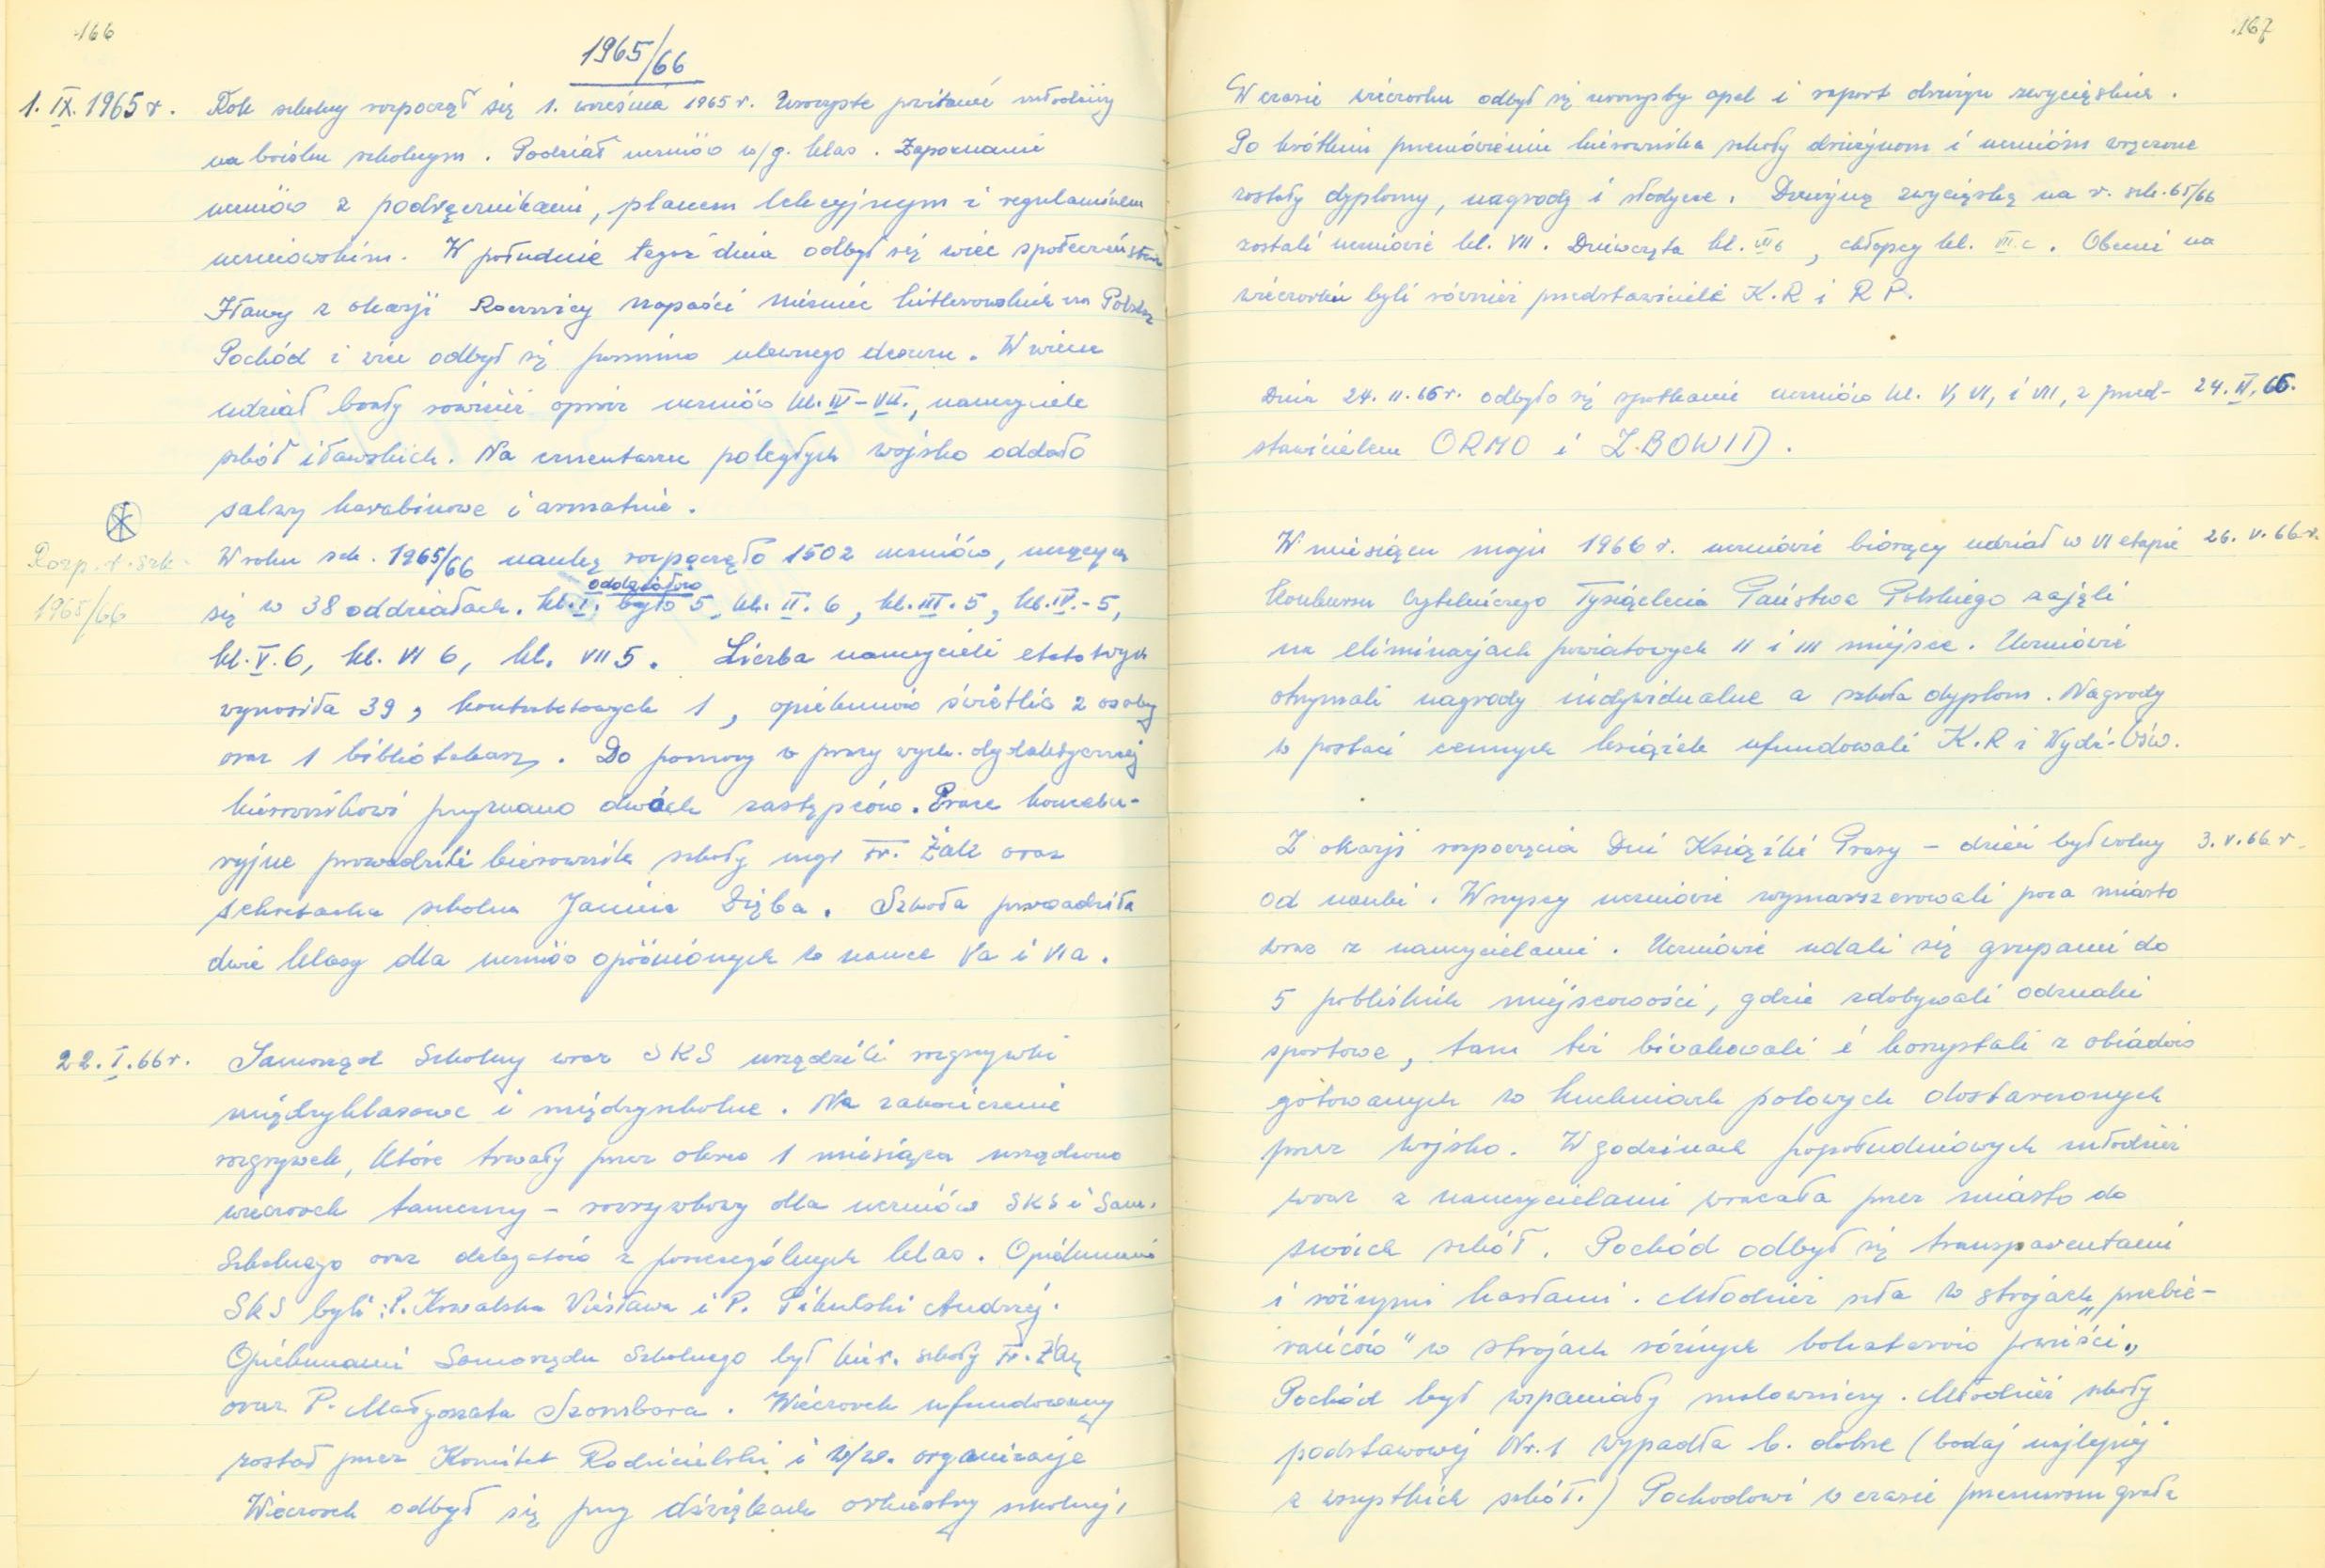 166
1965/66
1. IX. 1965 r. Rok szkolny rozpoczął się 1. września 1965 r. Uroczyste powitanie młodzieży
na boisku szkolnym. Podział uczniów w/g. klas. Zapoznanie
uczniów z podręcznikami, planem lekcyjnym i regulaminem
uczniowskim. W południe tegoż dnia odbył się wiec społeczeństwa
Iławy z okazji Rocznicy napaści Niemiec hitlerowskich na Polskę
Pochód i wiec odbył się pomimo ulewnego deszczu. W wiecu
udział brały również oprócz uczniów kl. IV-VII., nauczyciele
szkół iławskich. Na cmentarzu poległych wojsko oddało
salwy karabinowe i armatnie.
Rozp. r. szk. 1965/66
W roku szk. 1965/66 naukę rozpoczęło 1502 uczniów, uczących
się w 38 oddziałach. kl. I. było oddziałów 5, kl. II. 6, kl. III. 5, kl. IV. - 5,
kl. V. 6, kl. VI 6, kl. VII 5. Liczba nauczycieli etatowych
wynosiła 39, kontraktowych 1, opiekunów świetlic 2 osoby
oraz 1 bibliotekarz. Do pomocy w pracy wych. dydaktycznej
kierownikowi przyznano dwóch zastępców. Prace kancela-
ryjne prowadzili kierownik szkoły mgr Fr. Żak oraz
sekretarka szkolna Janina Zięba. Szkoła prowadziła
dwie klasy dla uczniów opóźnionych w nauce Va i VIa.
22. I. 66 r. Samorząd Szkolny wraz SKS urządzili rozgrywki
międzyklasowe i międzyszkolne. Na zakończenie
rozgrywek, które trwały przez okres 1 miesiąca urządzono
wieczorek taneczny - rozrywkowy dla uczniów SKS i Sam.
Szkolnego oraz delegatów z poszczególnych klas. Opiekunami
SKS byli: P. Kowalska Wiesława i P. Pikulski Andrzej.
Opiekunami Samorządu Szkolnego był kier. szkoły Fr. Żak
oraz P. Małgorzata Szombara. Wieczorek ufundowany
został przez Komitet Rodzicielski i w/w. organizacje
Wieczorek odbył się przy dźwiękach orkiestry szkolnej,
167
W czasie wieczorku odbył się uroczysty apel i raport drużyn zwycięskich.
Po krótkim przemówieniu kierownika szkoły drużynom i uczniom wręczone
zostały dyplomy, nagrody i słodycze. Drużyną zwycięską na r. szk. 65/66
zostali uczniowie kl. VII. Dziewczęta kl. VII b, chłopcy kl. VII. c. Obecni na
wieczorku byli również przedstawiciele K.R i R P.
Dnia 24. II. 66 r. odbyło się spotkanie uczniów kl. V, VI, i VII, z przed- 24. II. 66.
stawicielem ORMO i Z.BOWID.
W miesiącu maju 1966 r. uczniowie biorący udział w VI etapie 26. V. 66 r.
Konkursu Czytelniczego Tysiąclecia Państwa Polskiego zajęli
na eliminacjach powiatowych II i III miejsce. Uczniowie
otrzymali nagrody indywidualne a szkoła dyplom. Nagrody
w postaci cennych książek ufundowali K.R i Wydz. Ośw.
Z okazji rozpoczęcia Dni Książki Prasy - dzień był wolny 3. V. 66 r.
od nauki. Wszyscy uczniowie wymaszerowali poza miasto
wraz z nauczycielami. Uczniowie udali się grupami do
5 pobliskich miejscowości, gdzie zdobywali odznaki
sportowe, tam też biwakowali i korzystali z obiadów
gotowanych w kuchniach polowych dostarczonych
przez wojsko. W godzinach popołudniowych młodzież
wraz z nauczycielami wracała przez miasto do
swoich szkół. Pochód odbył się transparentami
i różnymi hasłami. Młodzież szła w strojach „przebie-
rańców" w strojach różnych bohaterów powieści„
Pochód był wspaniały malowniczy. Młodzież szkoły
podstawowej Nr. 1 wypadła b. dobrze (bodaj najlepiej
z wszystkich szkół.) Pochodowi w czasie przemarszu grała